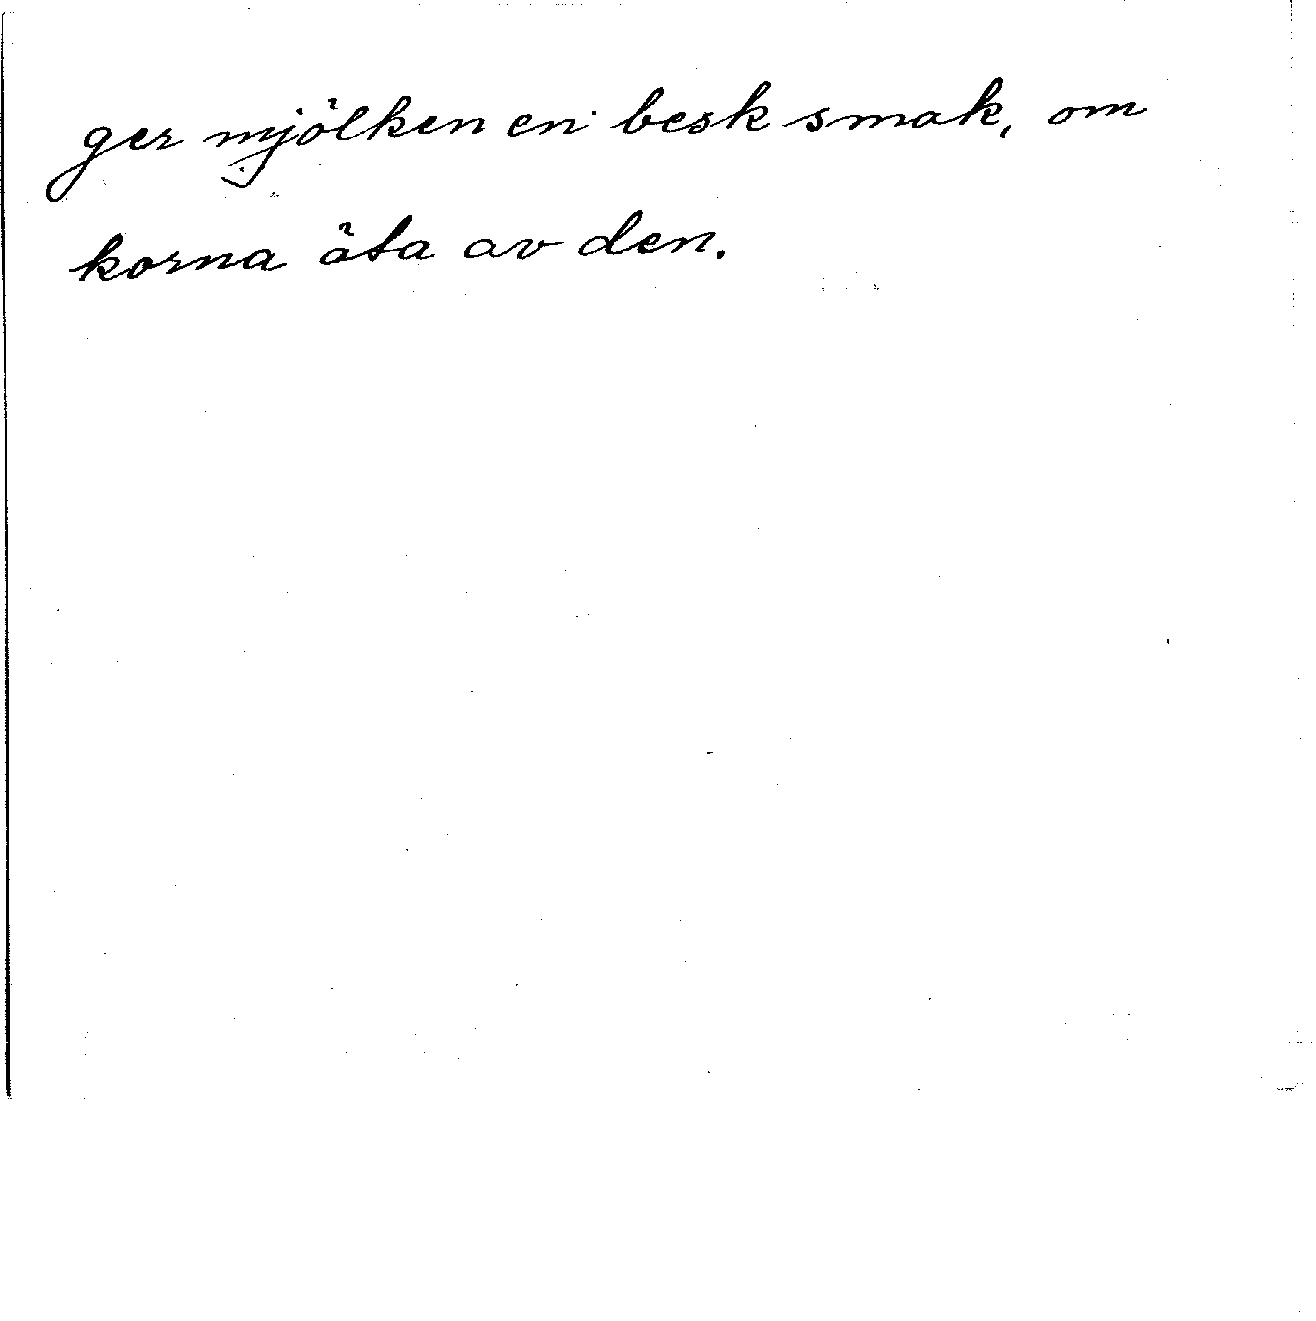 ger mjölken en besk smak, om
korna äta av den.